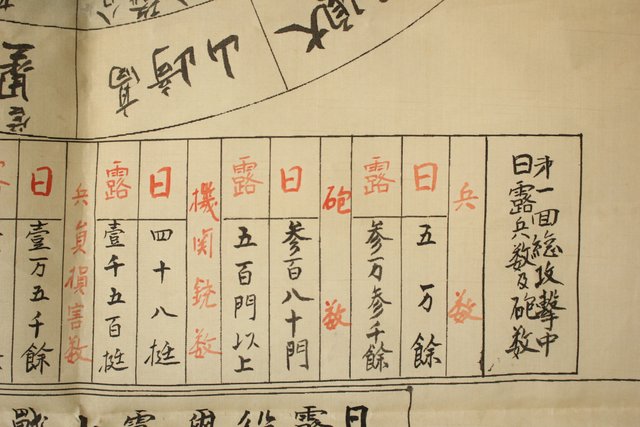 第一回総攻撃中
日露兵数及砲数
兵数
日
五万餘
露
参万参千餘
砲数
日
参百八十門
露
五百門以上
機関銃数
日
四十八挺
露
壹千五百挺
兵員損害数
日
壹万五千餘
高崎山